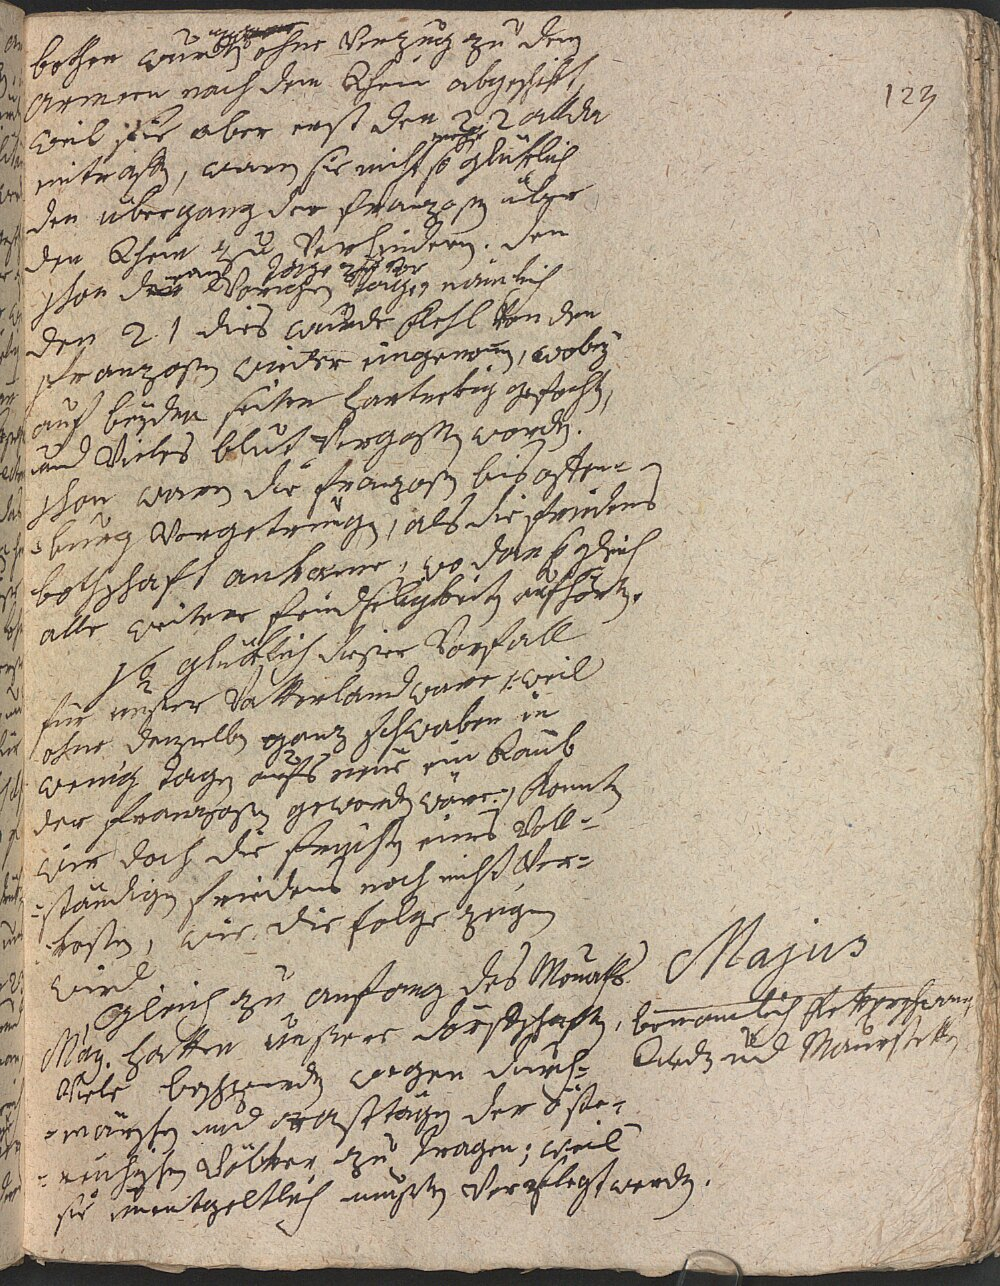 123
bothen wurden ohne Verzug zu den
Armeen nach dem Rhein abgeschikt,
weil sie aber erst den 22 allda
eintrafen, waren sie nicht mehr so glüklich
den übergang der Franzosen über
den Rhein zu verhindern. den
schon den vorigen tage, nämlich
den 21 dies wurde Kehl von den
Franzosen wieder eingenomen, wobey
auf beyden seiten hartnekig gefochten,
und vieles blut vergossen worden.
schon waren die Franzosen bis offen-
-burg vorgetrungen, als die friedens
bothschaft ankame, wo dan so gleich
alle weitere feindseligkeiten aufhörten.
So glüklich dieser Vorfall
für unser Vatterland ware, weil
ohne denselben ganz schwaben in
wenig tagen aufs neue ein Raub
der Franzosen geworden wäre, konnten
wir doch die Früchten eines voll-
-ständigen friedens noch nicht ver-
-kosten, wie die folge zeigen
wird
Majus
Gleich zu anfang des Monaths
May. hatten unsere dorfschaften, benamtlich Pfettershausen,
Rieden und Maurstetten
viele beschwerden wegen durch-
-märschen und rasttägen der öste-
-reichischen Völker zu tragen; weil
sie unentgeltlich musten verpflegt werden.